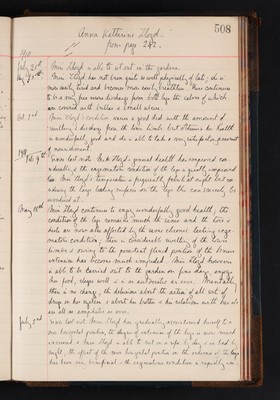 508
Anna Katherine Lloyd.
from page 242.
1910
July 20th Miss Lloyd is able to sit out in the gardens.
Miss Lloyd has not been quite so well physically of late; she is
more easily tired and becomes more easily breathless. There continues
to be a very free serous discharge from both legs the calves of which
are covered with bullae & small ulcers.
Oct. 2nd Miss Lloyd's condition varies a good deal with the amount of
swelling & discharge from the lower limbs but otherwise her health
is wonderfully good and she is able to take a very satisfactory amount
of nourishment.
1911
Feb 9th Since last note Miss Lloyd's general health has improved con
siderably & the eczematous condition of the legs is greatly improved
too. Miss Lloyd's temperature is frequently febrile at night but con
sidering the large leaking surfaces on the legs this can scarcely be
wondered at.
May 18th Miss Lloyd continues to enjoy wonderfully good health; the
condition of the legs remains much the same and the toes &
heels are now also affected by the same chronic leaking ecze
matous condition; there is considerable swelling of the lower
limbs & owing to the practical fixed position of the knees
extension has become much impeded. Miss Lloyd however
is able to be carried out to the garden on fine days, enjoys
her food, sleeps well & is as autocratic as ever. Mentally
there is no change, the delusions about the action of all sorts of
drugs in her system & about her brother & his relations with her are
all as conspicuous as ever.
July 2nd Since last note Miss Lloyd has gradually accustomed herself to a
more horizontal position, the degree of extension of the legs is more much
increased & Miss Lloyd is able to rest on a sofa by day & in bed by
night, the effect of the more horizontal position on the oedema of the legs
has been very beneficial & the eczematous condition is rapidly im